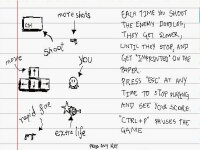 more shots
EACH TIME YOU SHOOT
THE ENEMY DOODLES,
THEY GET SLOWER,
UNTIL THEY STOP AND
GET "IMPRINTED" ON THE
PAPER.
PRESS "ESC" AT ANY
TIME TO STOP PLAYING
AND SEE YOUR SCORE.
"CTRL+P" PAUSES THE
GAME
shoot
move
you
rapid fire
extra life
Press any key